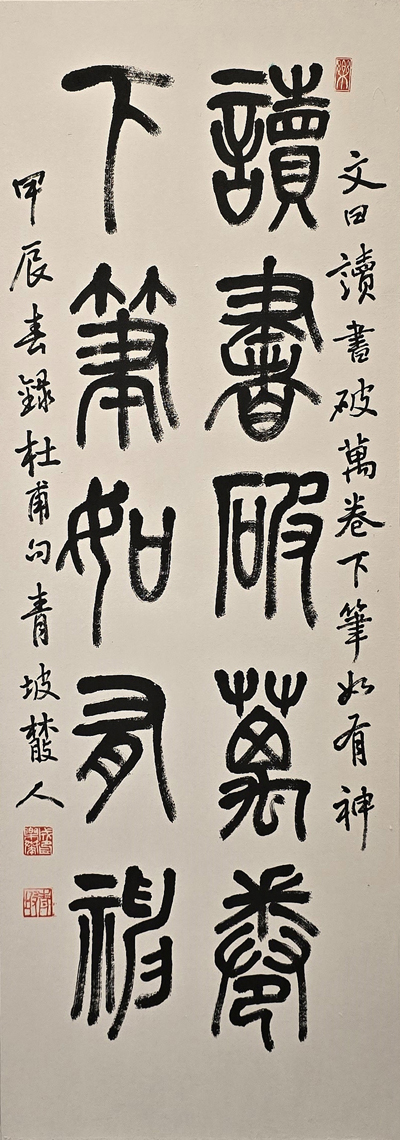 文曰讀書破萬卷下筆如有神
讀書破萬卷
下筆如有神
甲辰春錄杜甫句青坡散人